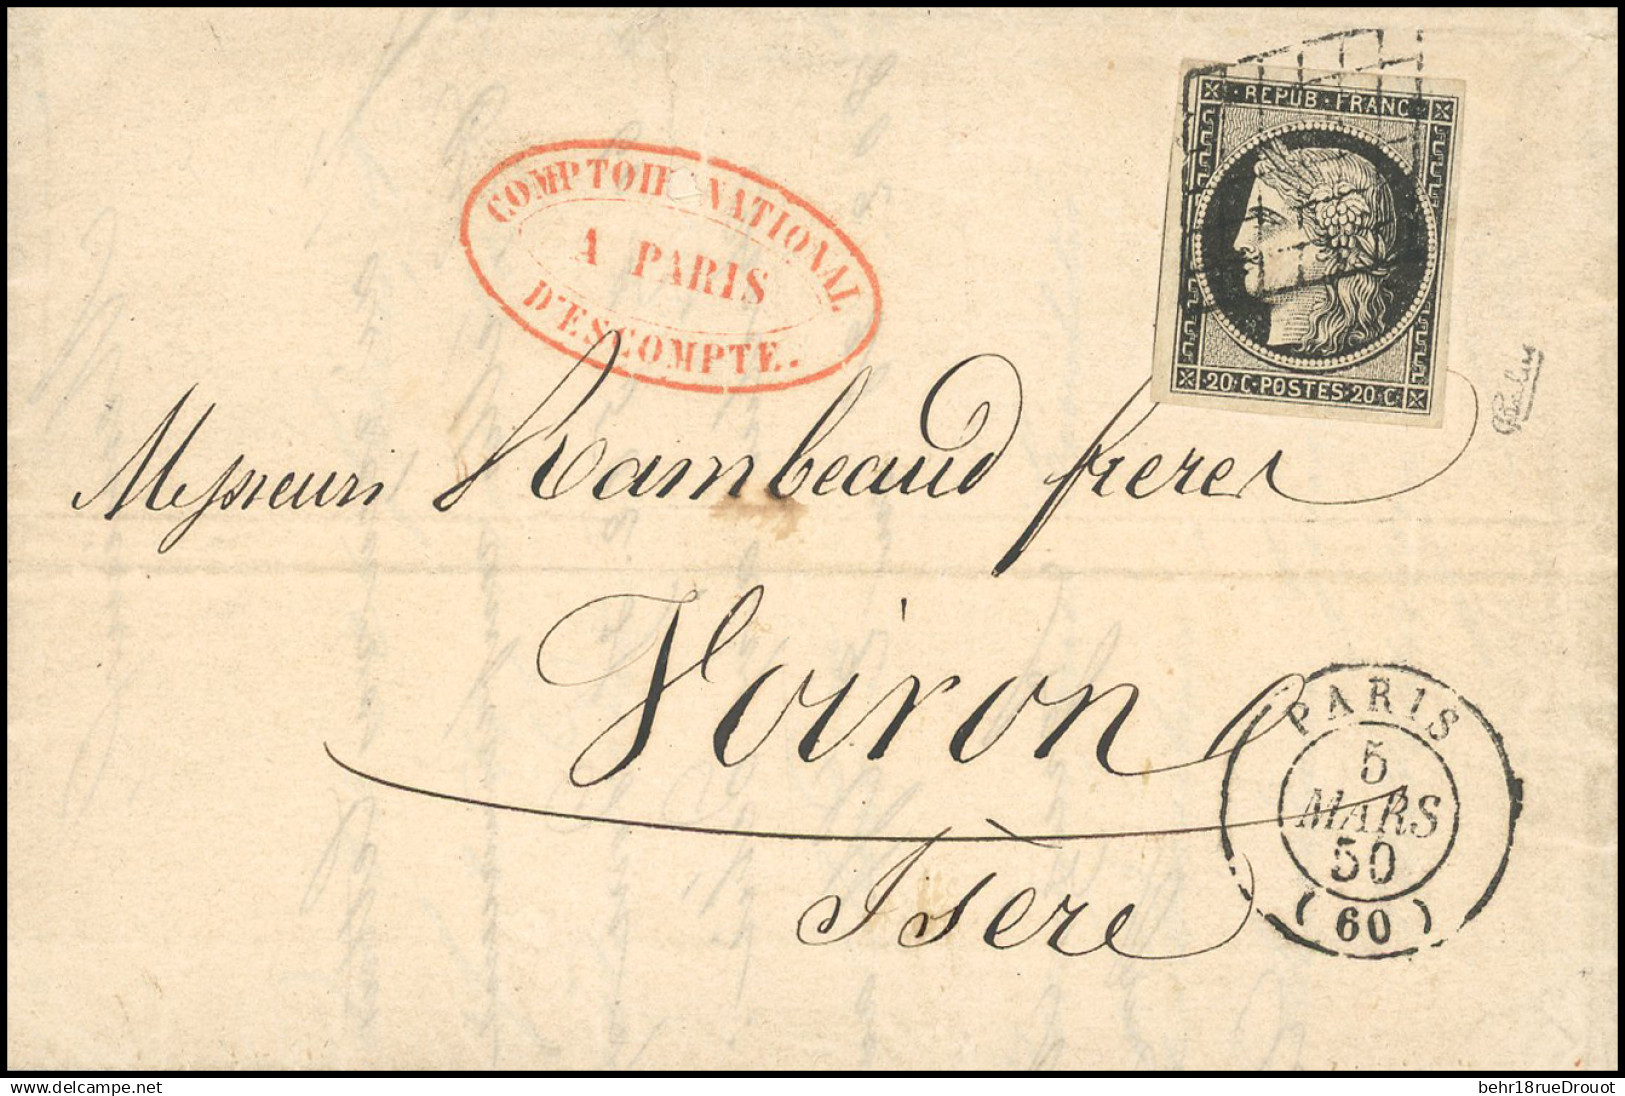 REPUB · FRANC
20 · C · POSTES · 20 · C
COMPTOIR NATIONAL
A PARIS
D'ESCOMPTE.
Messieurs Rambeaud freres
Voiron
Isère
PARIS
5
MARS
50
(60)
www.delcampe.net
behr18rueDrouot